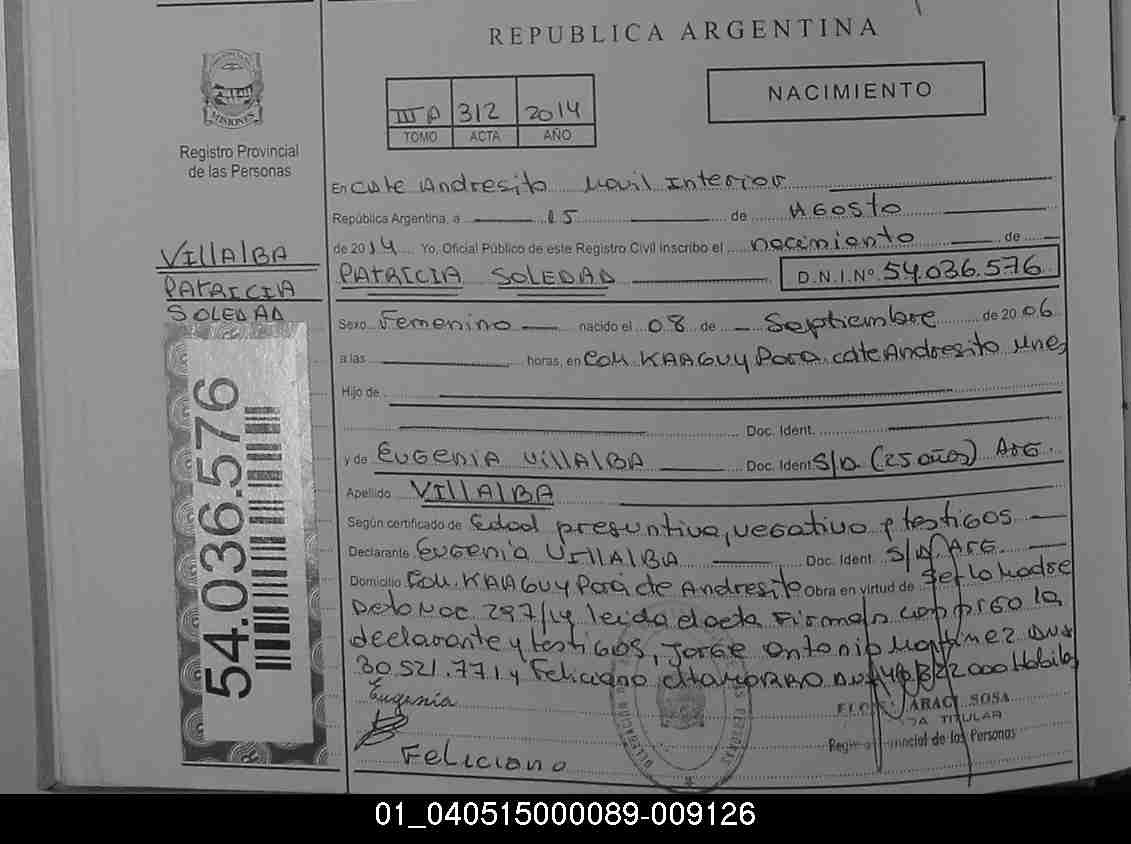 REPUBLICA ARGENTINA
NACIMIENTO
III A 312 2014
TOMO ACTA AÑO
MISIONES
Registro Provincial
de las Personas
VILLALBA
PATRICIA
SOLEDAD
54.036.576
En Cdte Andresito Movil Interior
República Argentina, a 15 de Agosto
de 2014 Yo, Oficial Público de este Registro Civil inscribo el nacimiento de
PATRICIA SOLEDAD D.N.I.Nº 54.036.576
Sexo Femenino nacido el 08 de Septiembre de 2006
a las horas, en Com. KAAGUY Pora cdte Andresito Mnes
Hijo de
Doc. Ident.
y de EUGENIA VILLALBA Doc. Ident S/D (25 años) ArG
Apellido VILLALBA
Según certificado de Edad presuntiva, negativo y testigos
Declarante EUGENIA VILLALBA Doc. Ident. S/D. ArG.
Domicilio Com. KAAGUY Pora cdte Andresito Obra en virtud de Ser la Madre
297/14 leida el acta Firman la
declarante y testigos, Jorge Antonio Martinez
30.521.771 y Feliciano
Eugenia
Feliciano
SOSA
TITULAR
de las Personas
01_040515000089-009126